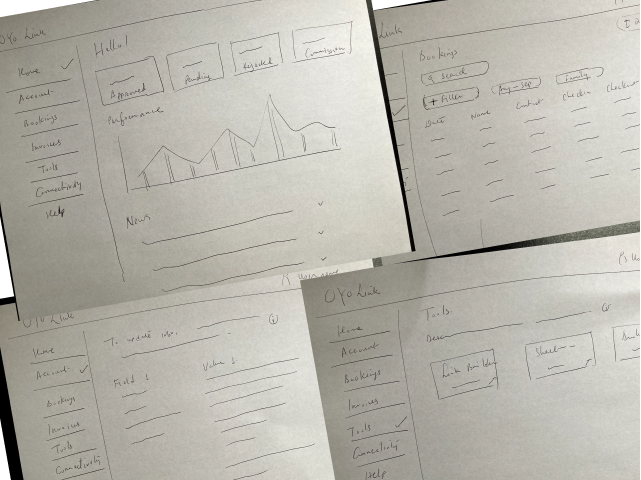 OYO Link
Hello!
Home
Account
Bookings
Invoices
Tools
Connectivity
Help
Approved
Pending
Rejected
Commission
Performance
News
Link
Bookings
Search
+ Filter
Aug-Sep
Date
Name
Contact
Checkin
Checkout
OYO Link
Home
Account
Bookings
Invoices
Tools
Connectivity
To update info,
Field ↓
Value ↓
OYO Link
Home
Account
Bookings
Invoices
Tools
Connectivity
Help
Tools
Link Builder